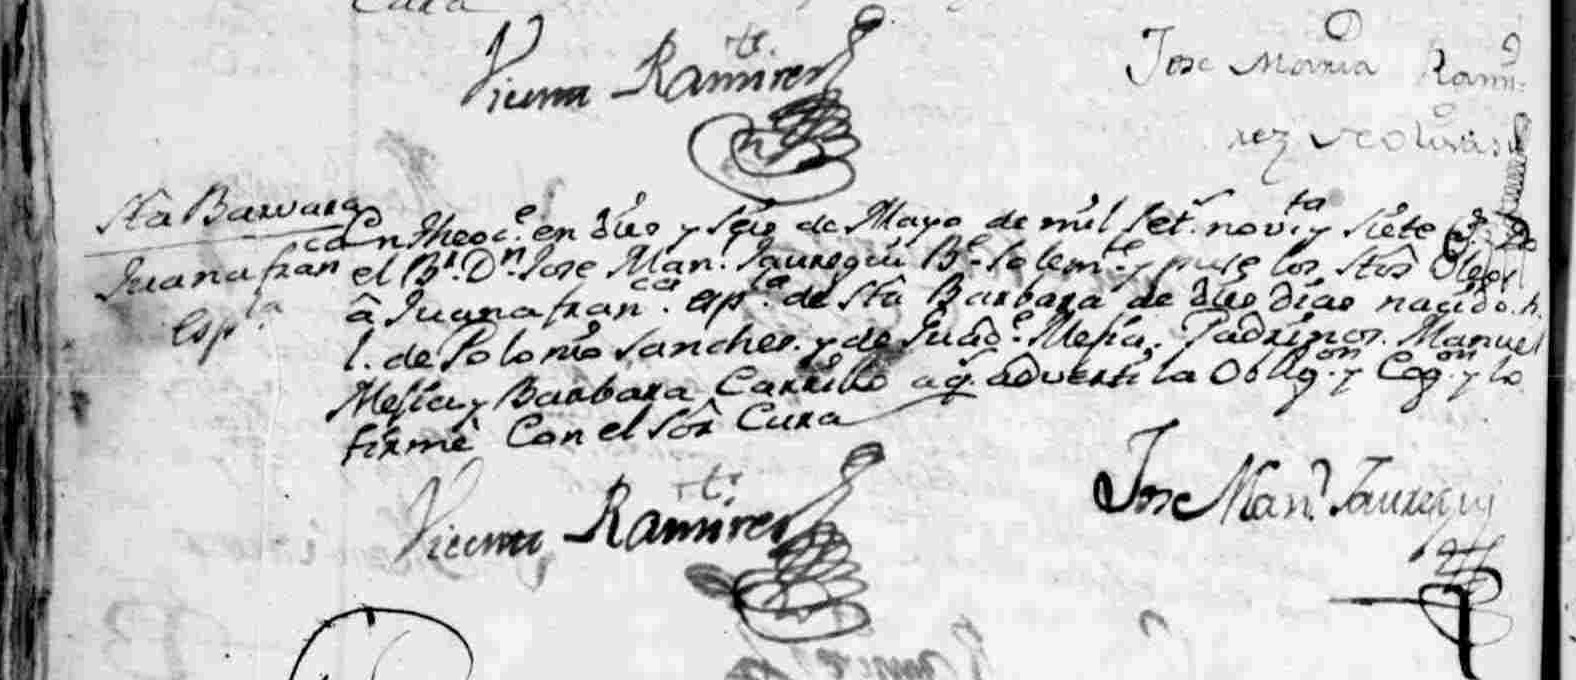 Cura
Vicente Ramirez
Jose Maria Rami
rez
Sta Barvara
Juana fran.ca
Esp.la
En Theoc.e en dies y seis de Mayo de mil set.s nov.ta y siete
el Br. Dn. Jose Man. Jauregui B.e Solem.te y puse los Stôs Oleos
â Juana fran.ca esp.la de Stâ Barbara de dies dias nacida. h.
l. de Polonio Sanches. y de Guâd.e Mesia. Padrinos. Manuel
Mesia y Barbara Carrillo a q.s advertî la Oblig.on y Cog.on y lo
firmê Con el Sôr Cura
Vicente Ramirez
Jose Man.l Jauregui